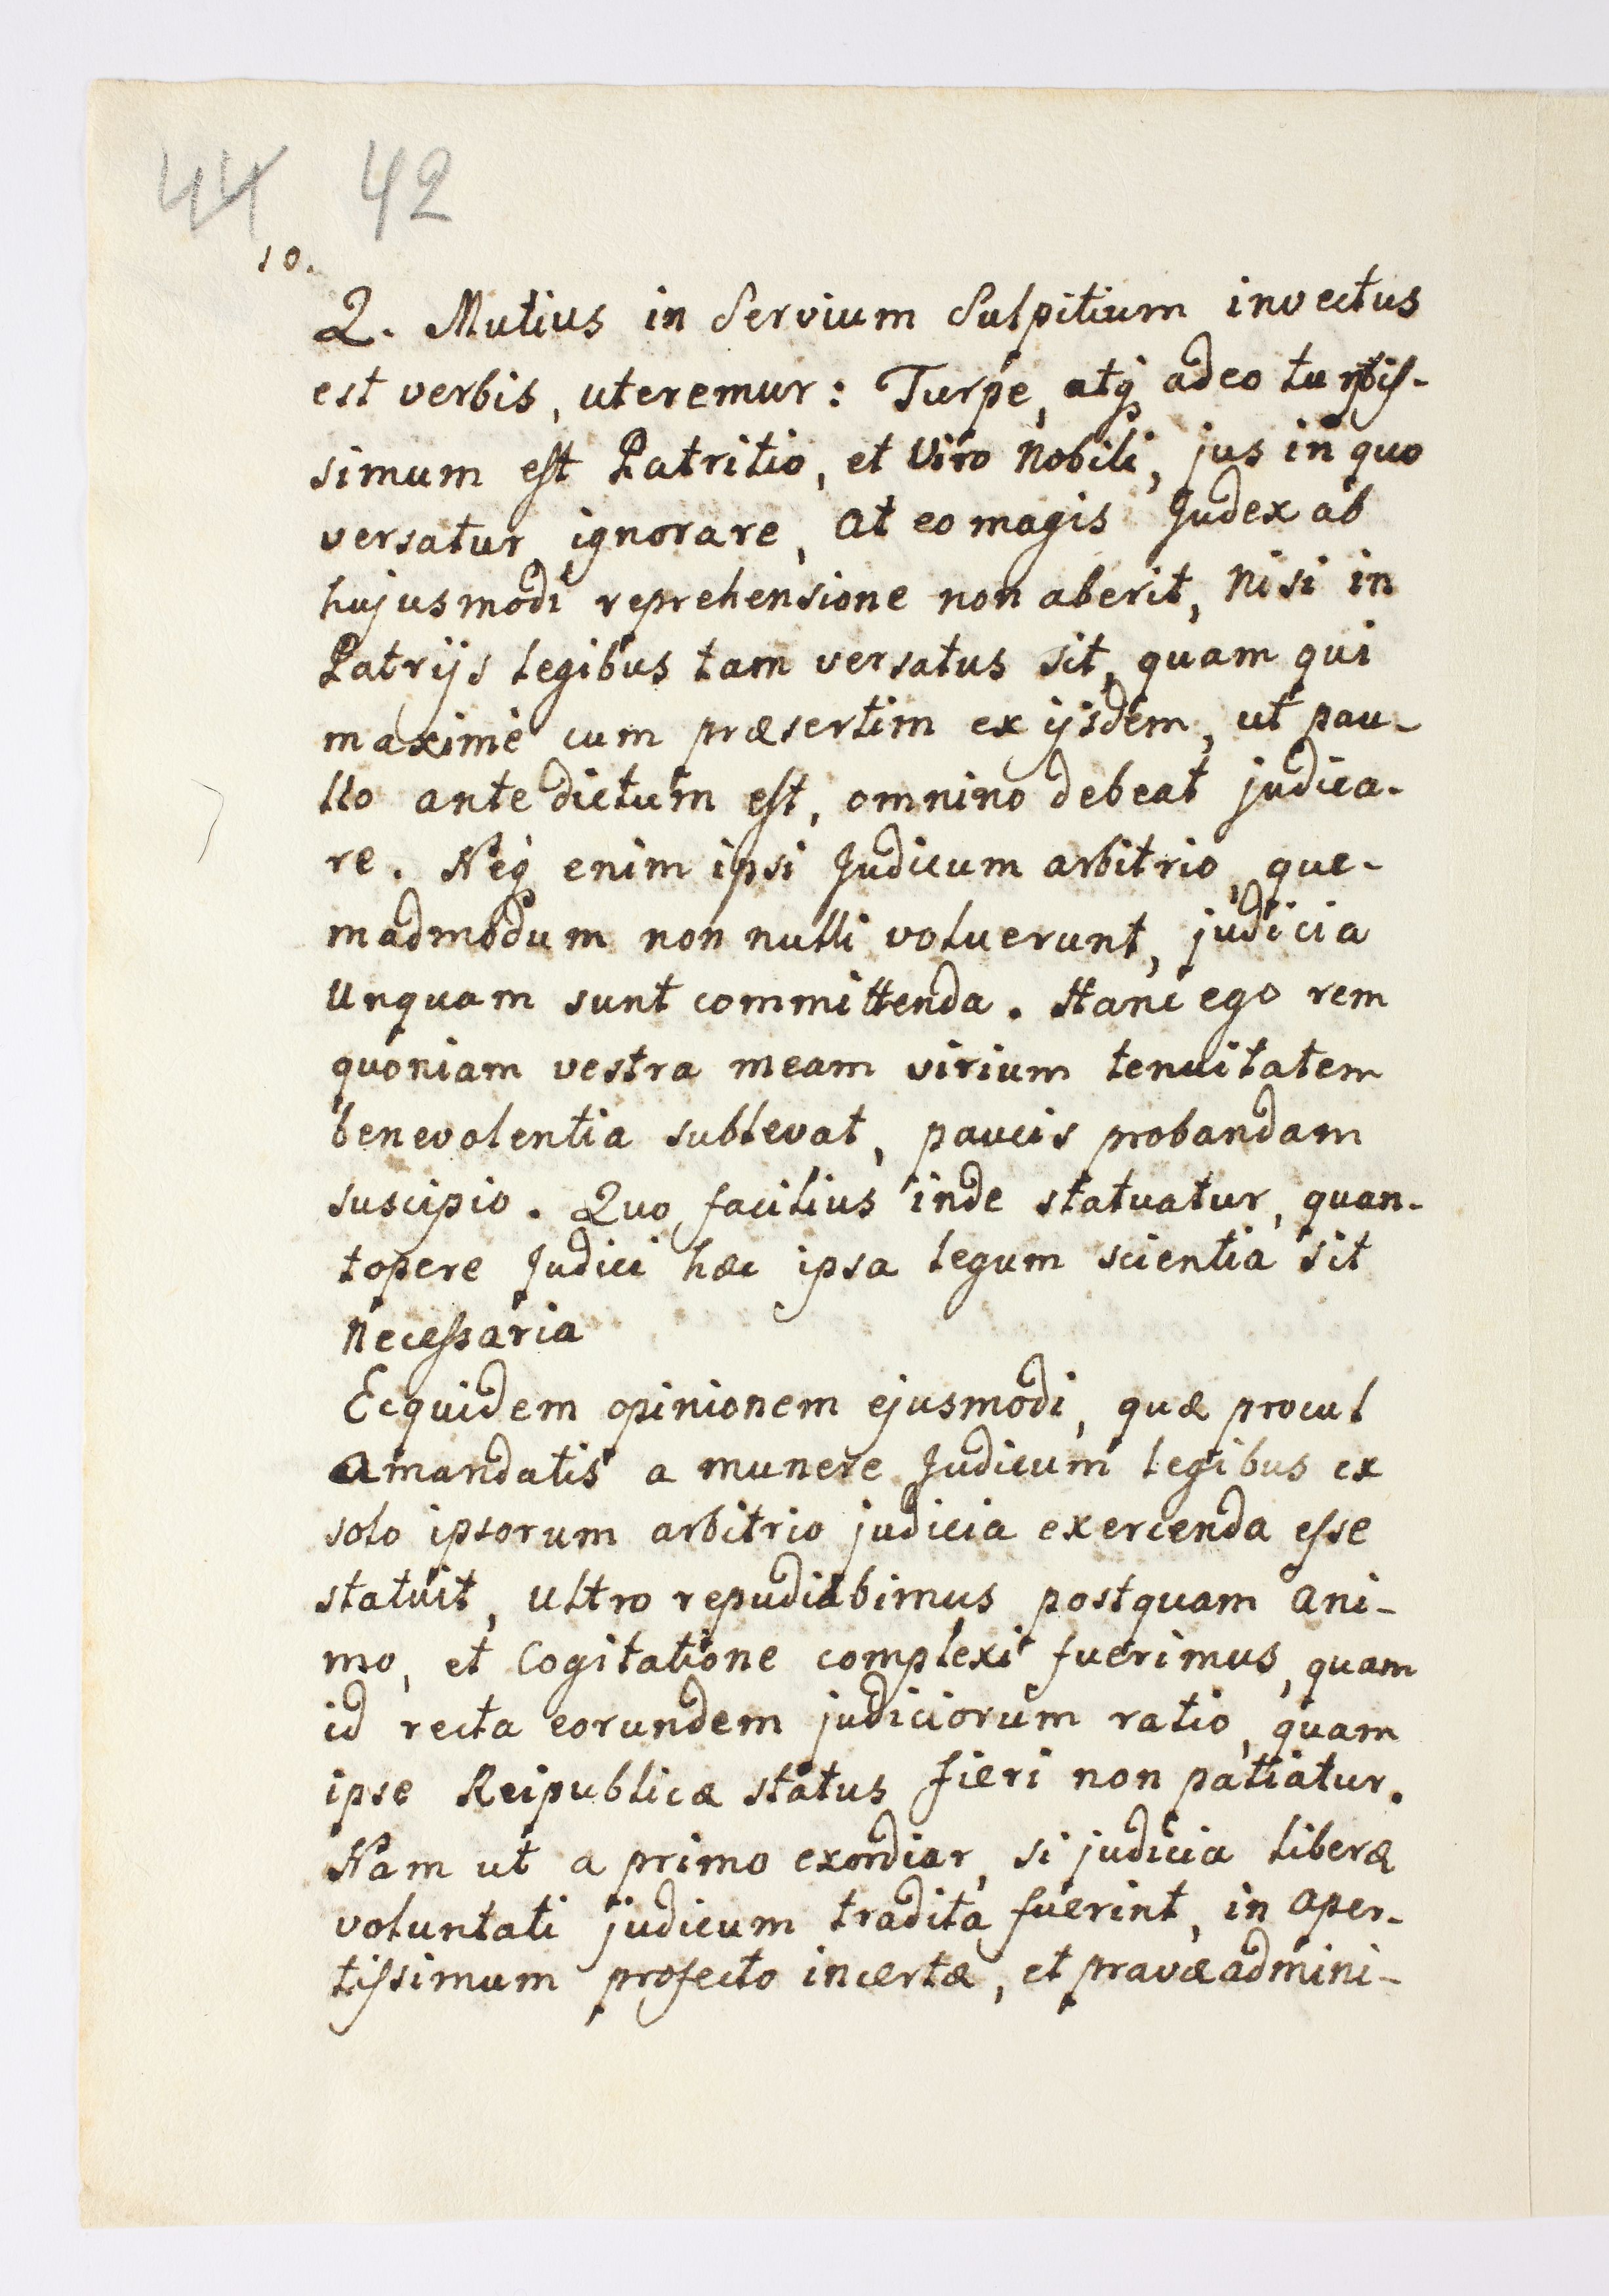 44 42
10.
Q. Mutius in Servium Sulpitium invectus
est verbis, uteremur: Turpe, atq adeo turpis-
simum est Patritio, et Viro Nobili, jus in quo
versatur ignorare, at eo magis Judex ab
hujusmodi reprehensione non aberit, nisi in
Patrijs legibus tam versatus sit, quam qui
maximè cum præsertim ex ijsdem, ut pau-
llo ante dictum est, omnino debeat judica-
re. Neq enim ipsi Judicum arbitrio, que-
madmodum non nulli voluerunt, judicia
unquam sunt committenda. Hanc ego rem
quoniam vestra meam virium tenuitatem
benevolentia sublevat, paucis probandam
suscipio. Quo facilius inde statuatur, quan-
topere Judici hæc ipsa legum scientia sit
necessaria
Ecquidem opinionem ejusmodi, quæ procul
amandatis a munere Judicum legibus ex
solo ipsorum arbitrio judicia exercenda esse
statuit, ultro repudiabimus postquam ani-
mo, et Cogitatione complexi fuerimus, quam
id recta eorundem judiciorum ratio, quam
ipse Reipublicæ status fieri non patiatur.
Nam ut a primo exordiar, si judicia liberæ
voluntati judicum tradita fuerint, in aper-
tissimum profecto incertæ, et pravæ admini-